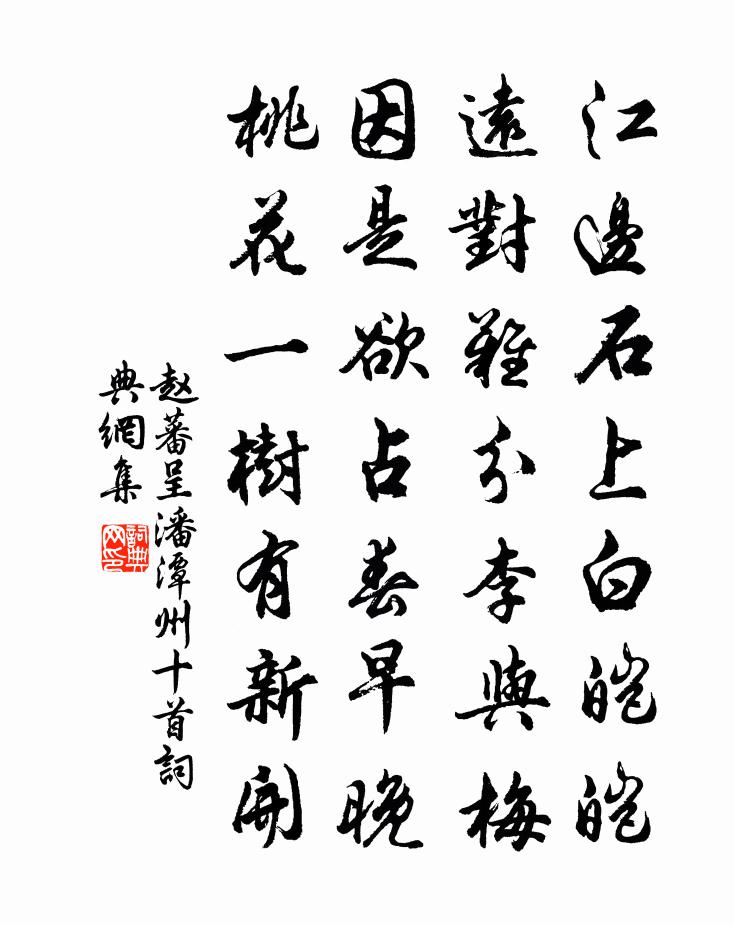 江邊石上白皚皚
遠對難分李與梅
因是欲占春早晚
桃花一樹有新開
赵蕃呈潘潭州十首詞
典網集
詞典网印